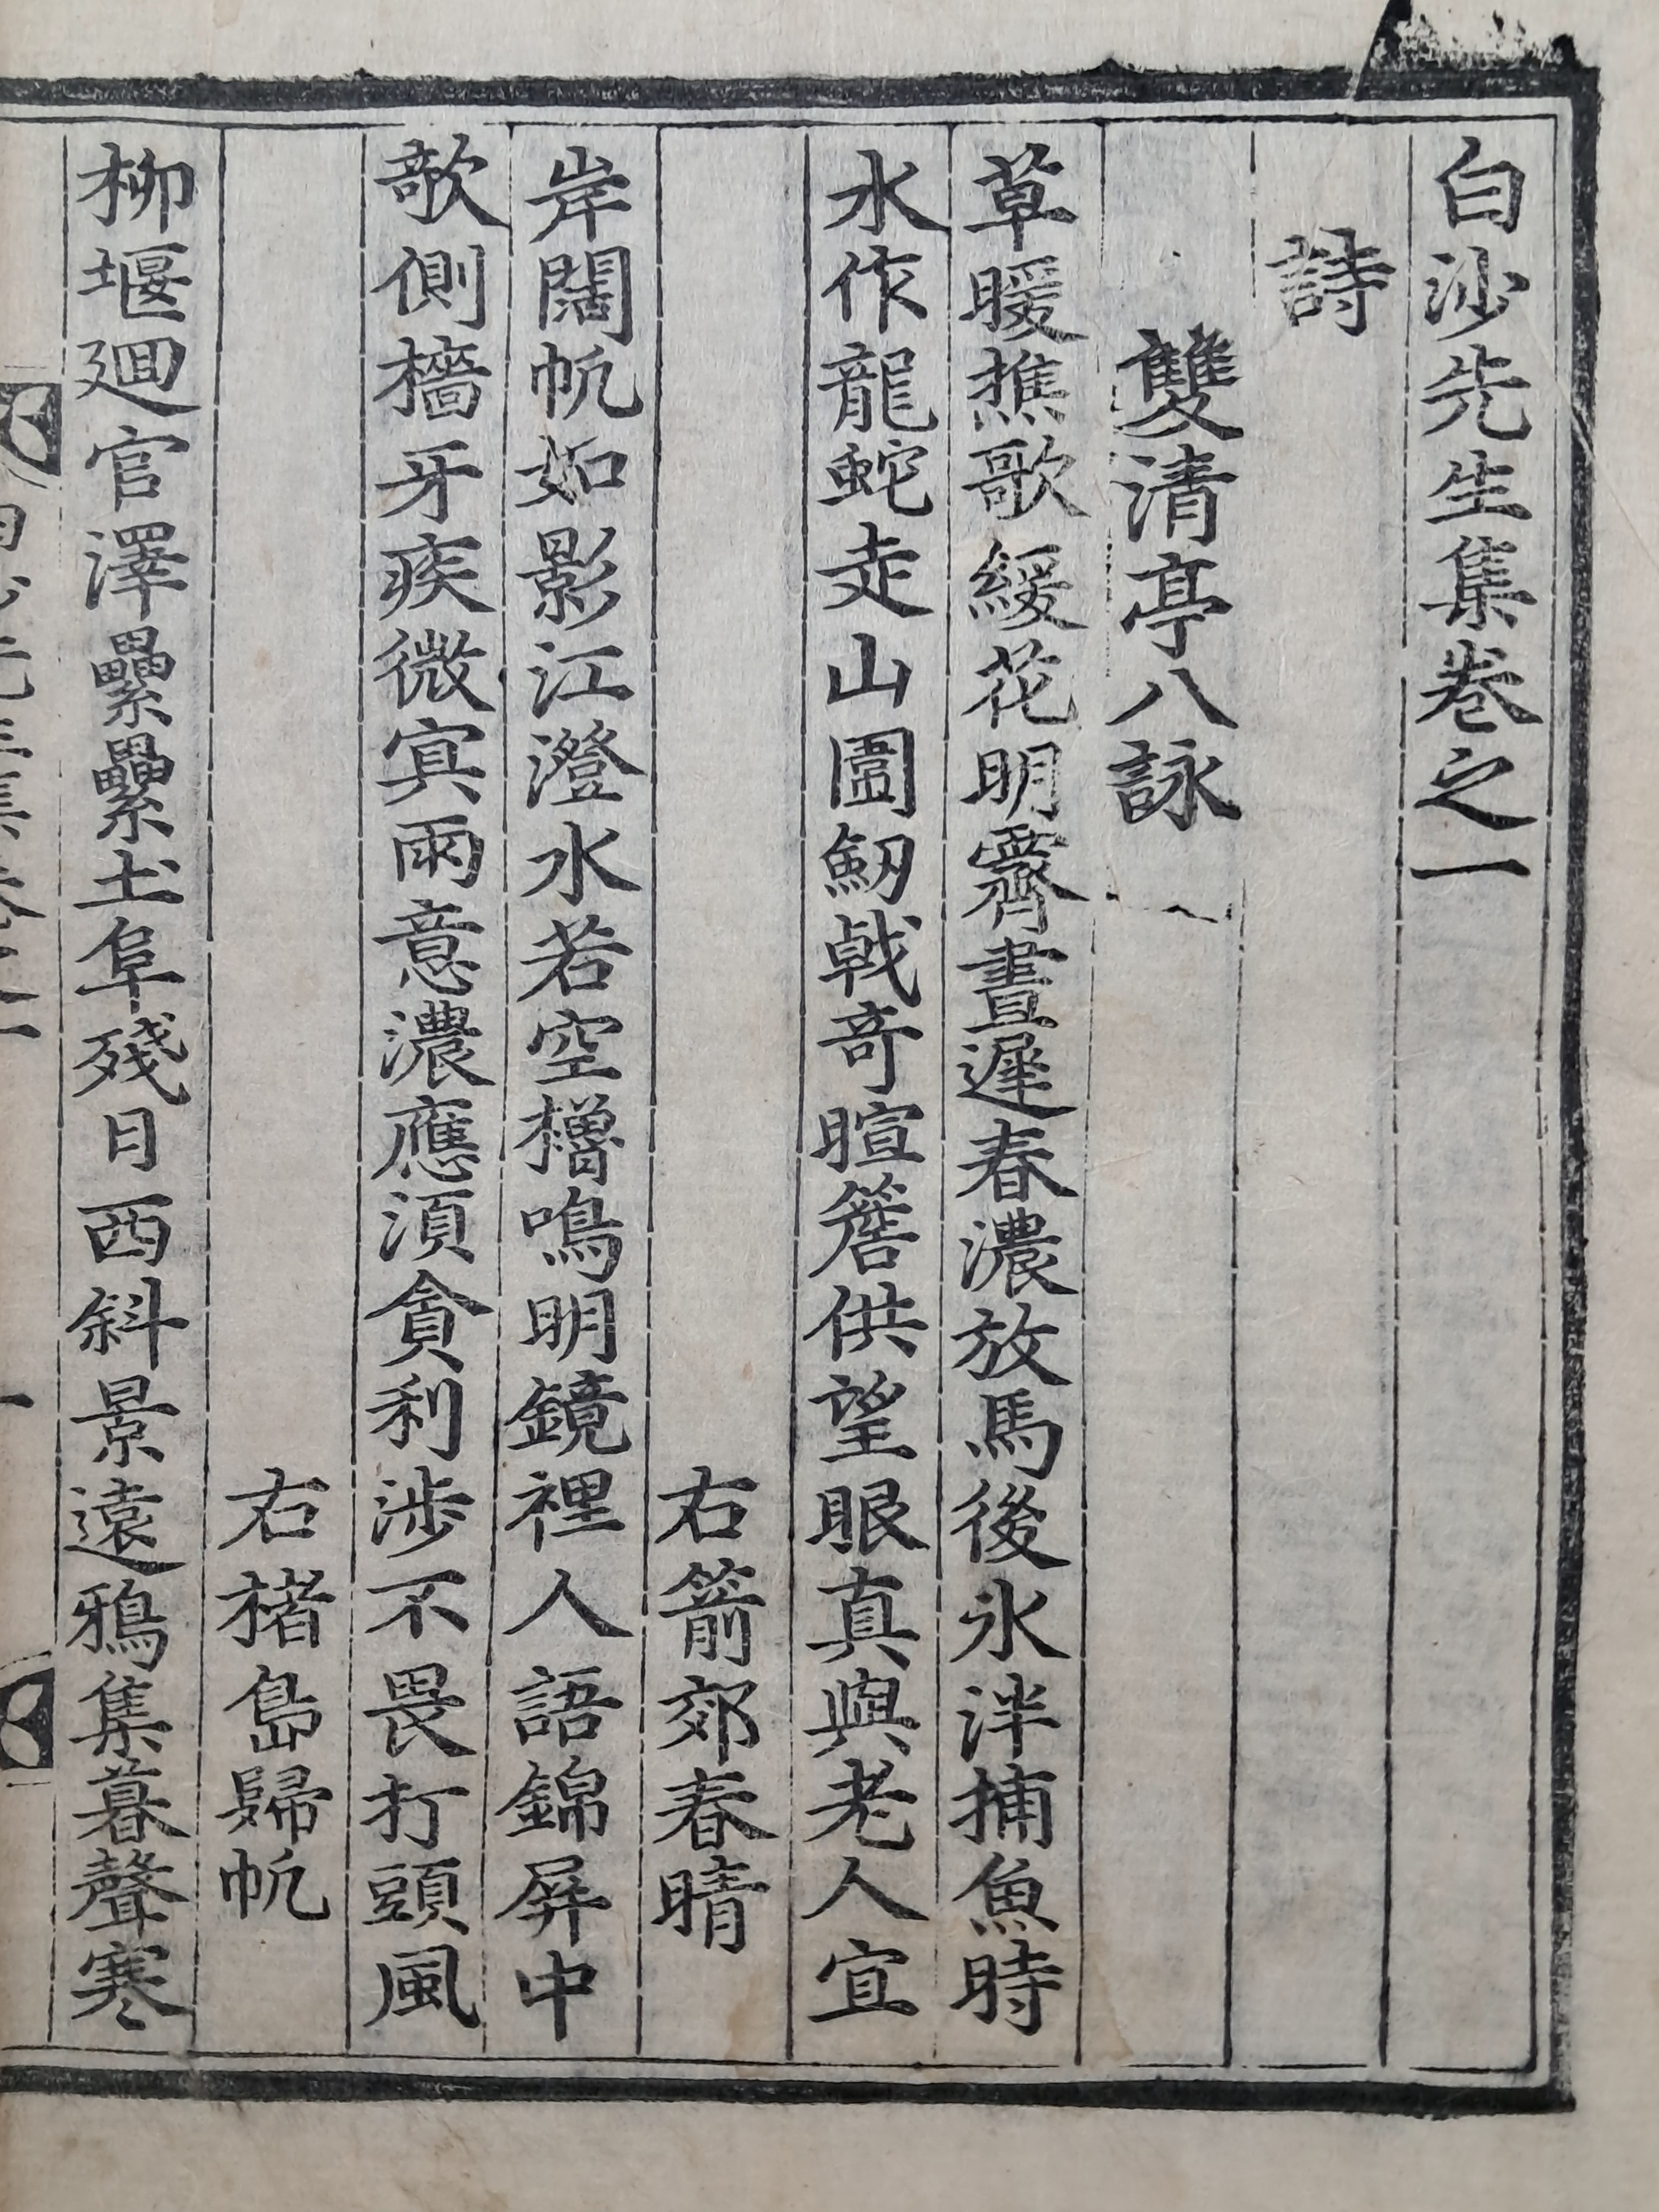 白沙先生集卷之一
詩
雙清亭八詠
草暖樵歌緩花明霽晝遲春濃放馬後氷泮捕魚時
水作龍蛇走山圍劒戟奇暄簷供望眼真與老人宜
右箭郊春晴
岸闊帆如影江澄水若空櫓鳴明鏡裡人語錦屏中
欹側檣牙疾微冥雨意濃應須貪利涉不畏打頭風
右楮島歸帆
柳堰廻官澤纍纍土阜殘日西斜景遠鴉集暮聲寒
白沙先生集卷之一
一